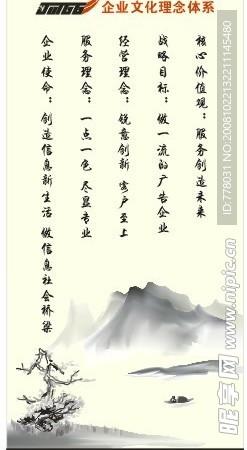 企业文化理念体系
核心价值观：服务创造未来
战略目标：做一流的广告企业
经营理念：锐意创新 客户至上
服务理念：一点一色 尽显专业
企业使命：创造信息新生活 做信息社会桥梁
ID:778031 NO:20081022132211145480
昵图网 www.nipic.com